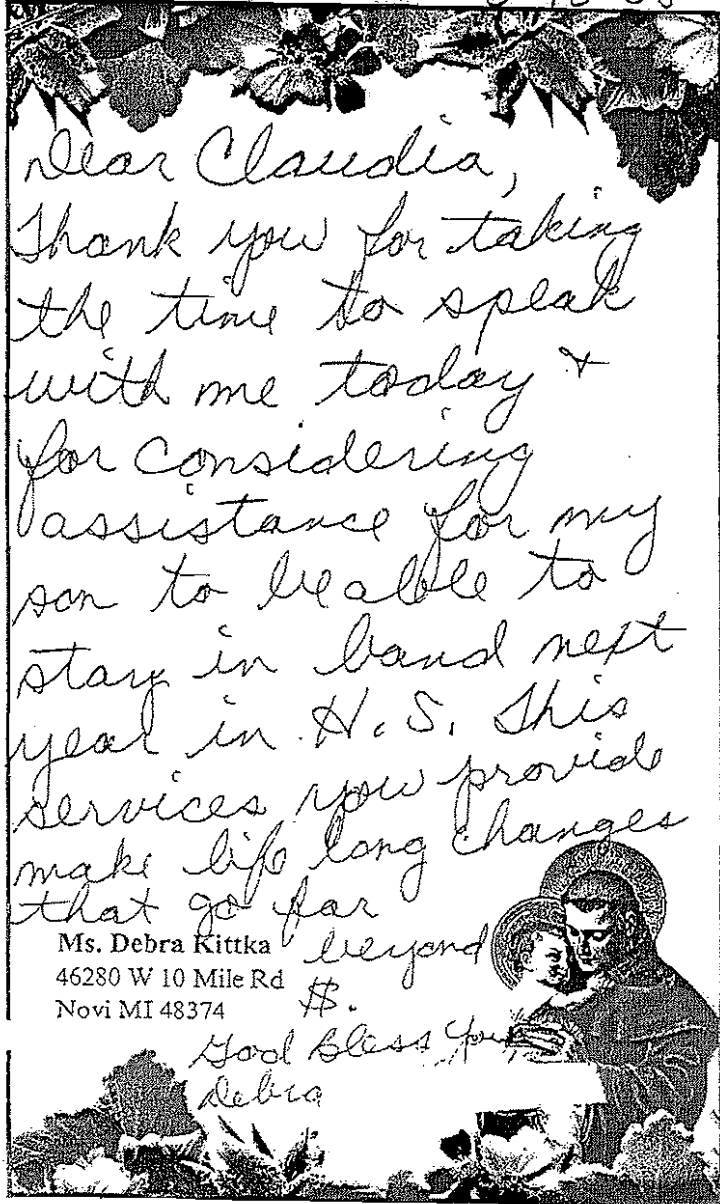 Dear Claudia,
Thank you for taking
the time to speak
with me today +
for considering
assistance for my
son to be able to
stay in band next
year in H.S. This
services you provide
make life long changes
that go far
beyond
$.
Ms. Debra Kittka
46280 W 10 Mile Rd
Novi MI 48374
God Bless You
Debra